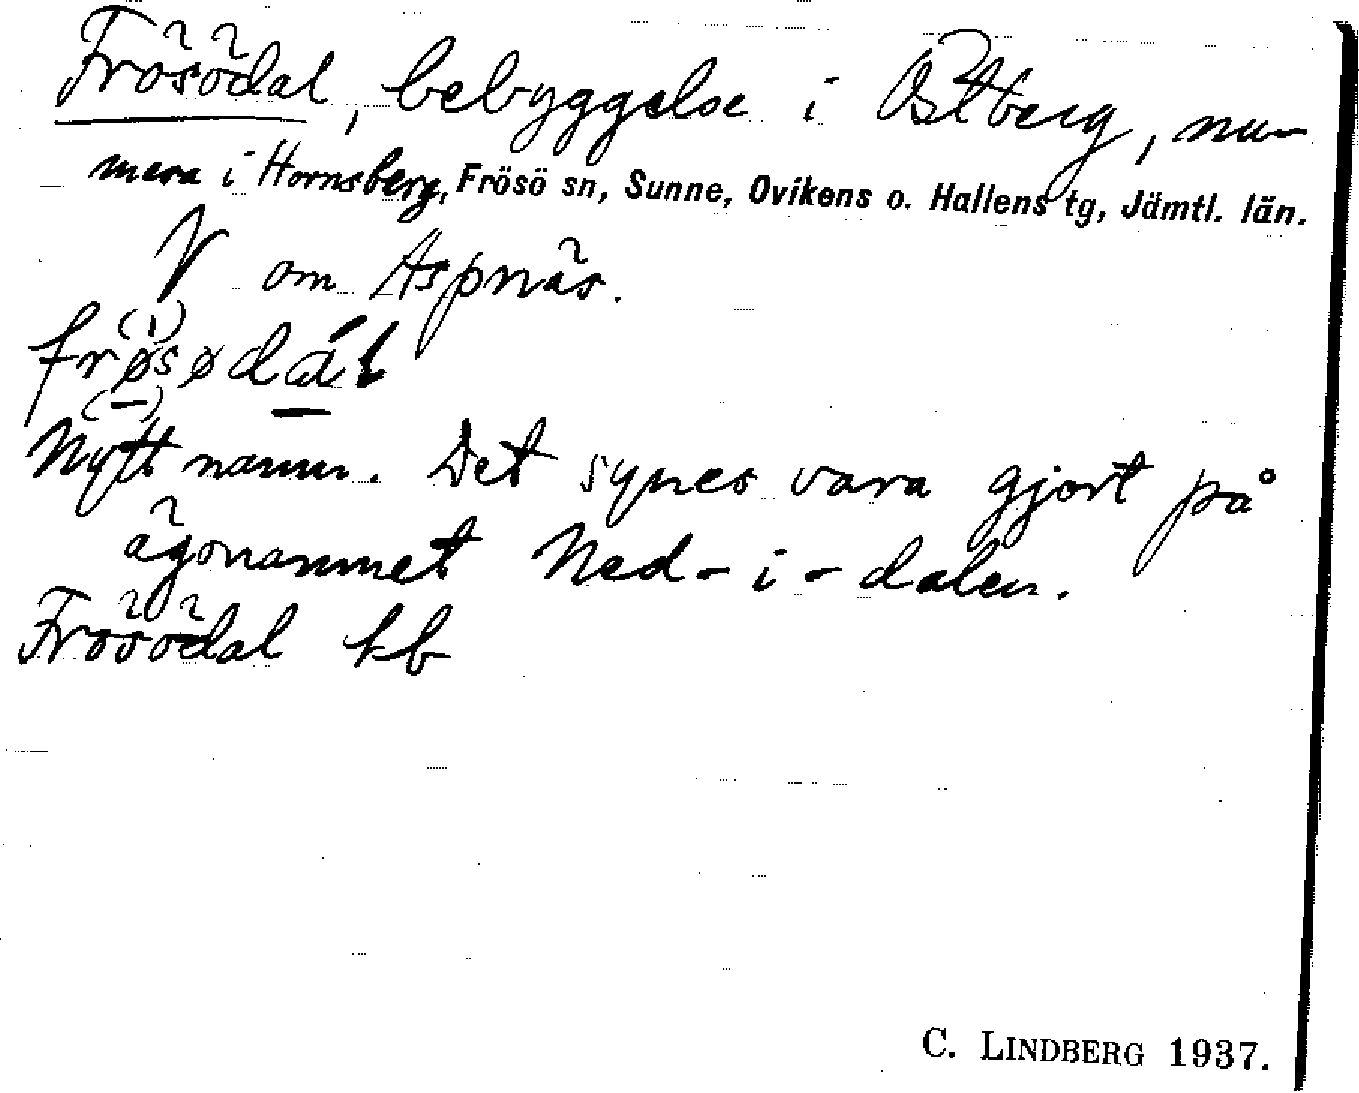 Frösödal, bebyggelse i Östberg, nu-
mera i Hornsberg, Frösö sn, Sunne, Ovikens o. Hallens tg, Jämtl. län.
V om Aspnäs.
frøsødál
Nytt namn. Det synes vara gjort på
ägonamnet Ned-i-dalen.
Frösödal kb
C. LINDBERG 1937.